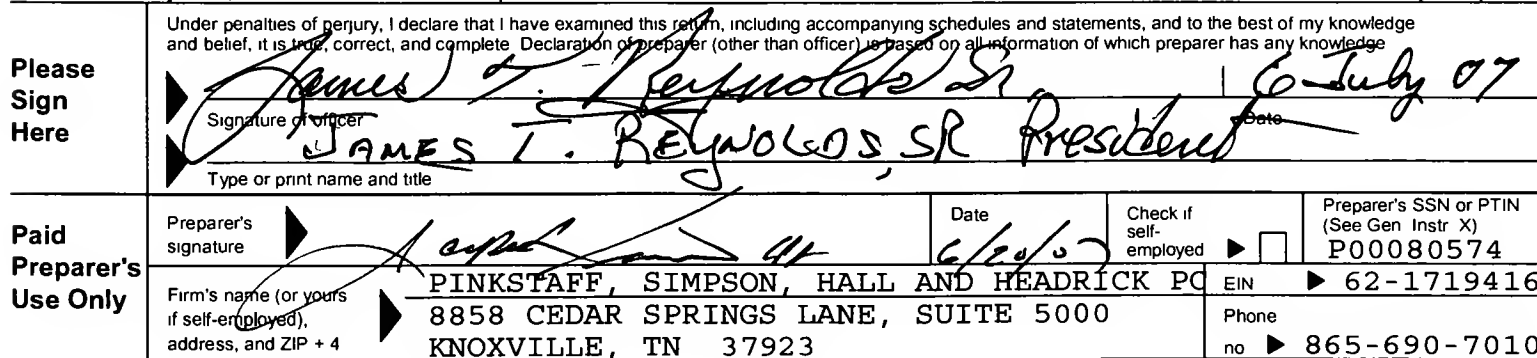 Under penalties of perjury, I declare that I have examined this return, including accompanying schedules and statements, and to the best of my knowledge
and belief, it is true, correct, and complete Declaration of preparer (other than officer) is based on all information of which preparer has any knowledge
Please
Sign
Here
James T. Reynolds Sr
6 July 07
Signature of officer
Date
JAMES T. REYNOLDS, SR President
Type or print name and title
Paid
Preparer's
Use Only
Preparer's
signature
Date
6/20/07
Check if
self-
employed
Preparer's SSN or PTIN
(See Gen Instr X)
P00080574
Firm's name (or yours
if self-employed),
address, and ZIP + 4
PINKSTAFF, SIMPSON, HALL AND HEADRICK PC
8858 CEDAR SPRINGS LANE, SUITE 5000
KNOXVILLE, TN 37923
EIN 62-1719416
Phone
no 865-690-7010